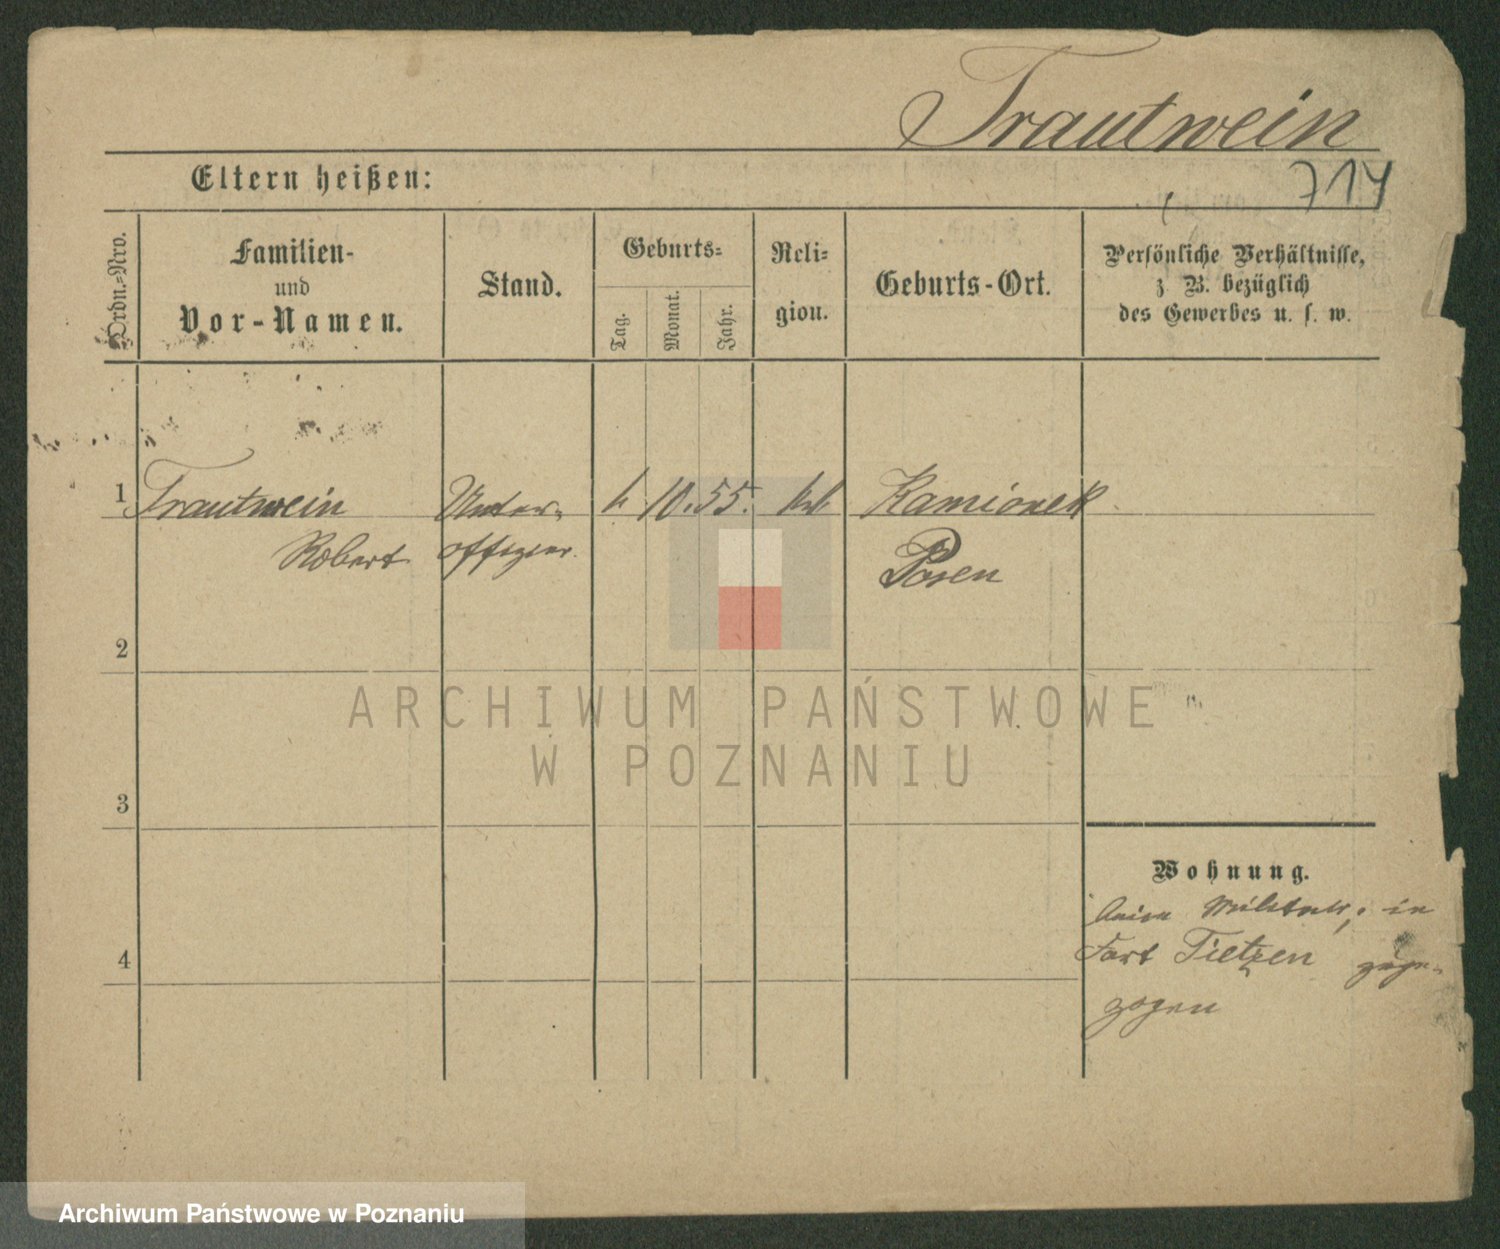 Trautwein
Eltern heißen:
714
Ordn.=Nro.
Familien-
und
Vor-Namen.
Stand.
Geburts=
Tag.
Monat.
Jahr.
Reli=
gion.
Geburts-Ort.
Persönliche Verhältnisse,
z B. bezüglich
des Gewerbes u. s. w.
1 Trautwein Unter- 10. 55. Kamionek
Robert offizier. Posen
2
3
4
Wohnung.
in
Fort Tietzen
zogen
ARCHIWUM PAŃSTWOWE
W POZNANIU
Archiwum Państwowe w Poznaniu